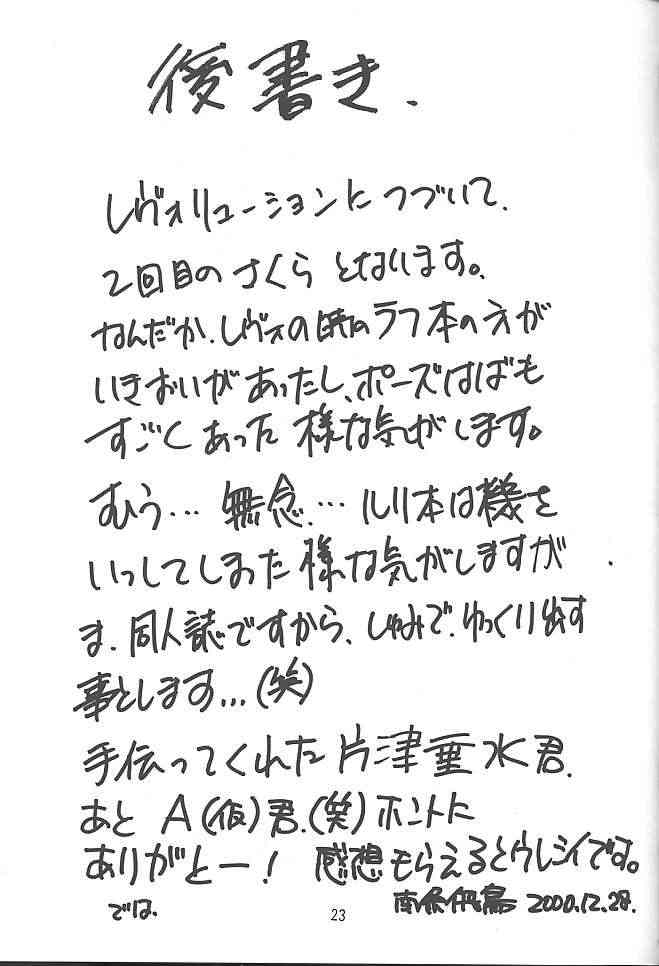 後書き.
レヴォリューションにつづいて.
2回目のさくらとなります。
なんだか.レヴォの時のラフ本の方が
いきおいがあったし、ポーズはばも
すごくあった様な気がします。
むう… 無念.… ルリ本は機を
いっしてしまった様な気がしますが
ま.同人誌ですから、しゅみで.ゆっくり出す
事とします...(笑)
手伝ってくれた片津亜水君.
あと A(仮)君.(笑)ホントに
ありがとー! 感想もらえるとウレシイです。
では.
2000.12.28.
23